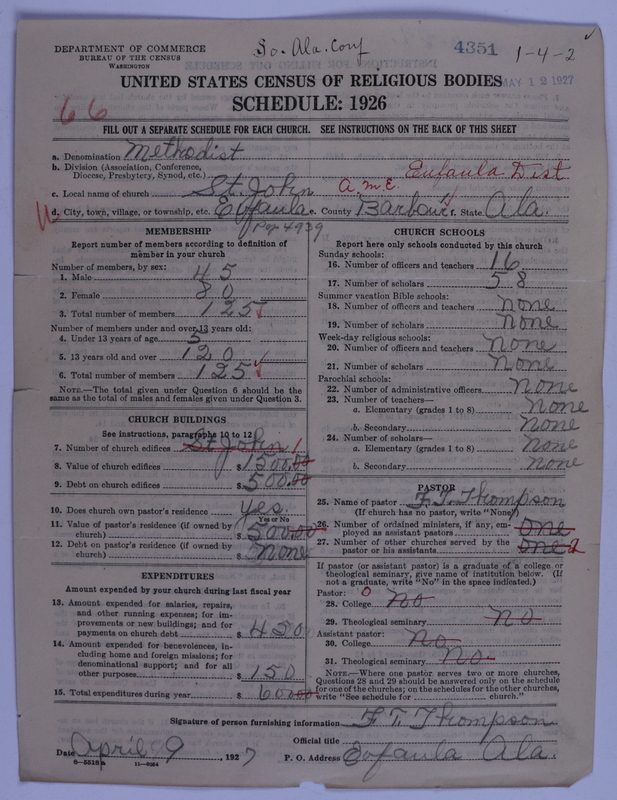 DEPARTMENT OF COMMERCE
BUREAU OF THE CENSUS
WASHINGTON
So. Ala. Conf
4351
1-4-2
MAY 12 1927
UNITED STATES CENSUS OF RELIGIOUS BODIES
SCHEDULE: 1926
66
FILL OUT A SEPARATE SCHEDULE FOR EACH CHURCH. SEE INSTRUCTIONS ON THE BACK OF THIS SHEET
a. Denomination Methodist
b. Division (Association, Conference, Diocese, Presbytery, Synod, etc.) Eufaula Dist
c. Local name of church St. John A.M.E.
d. City, town, village, or township, etc. Eufaula e. County Barbour f. State Ala.
Pop 4939
MEMBERSHIP
Report number of members according to definition of
member in your church
Number of members, by sex:
1. Male 45
2. Female 80
3. Total number of members 125
Number of members under and over 13 years old:
4. Under 13 years of age 5
5. 13 years old and over 120
6. Total number of members 125
NOTE.—The total given under Question 6 should be the
same as the total of males and females given under Question 3.
CHURCH BUILDINGS
See instructions, paragraphs 10 to 12
7. Number of church edifices St John 1
8. Value of church edifices $1500.00
9. Debt on church edifices $500.00
10. Does church own pastor's residence yes.
Yes or No
11. Value of pastor's residence (if owned by
church) $500.00
12. Debt on pastor's residence (if owned by
church) $None
EXPENDITURES
Amount expended by your church during last fiscal year
13. Amount expended for salaries, repairs,
and other running expenses; for im-
provements or new buildings; and for
payments on church debt $450
14. Amount expended for benevolences, in-
cluding home and foreign missions; for
denominational support; and for all
other purposes $150
15. Total expenditures during year $600.00
CHURCH SCHOOLS
Report here only schools conducted by this church
Sunday schools:
16. Number of officers and teachers 16
17. Number of scholars 58
Summer vacation Bible schools:
18. Number of officers and teachers none
19. Number of scholars none
Week-day religious schools:
20. Number of officers and teachers none
21. Number of scholars none
Parochial schools:
22. Number of administrative officers none
23. Number of teachers—
a. Elementary (grades 1 to 8) none
b. Secondary none
24. Number of scholars—
a. Elementary (grades 1 to 8) none
b. Secondary none
PASTOR
25. Name of pastor F. T. Thompson
(If church has no pastor, write "None")
26. Number of ordained ministers, if any, em-
ployed as assistant pastors one
27. Number of other churches served by the
pastor or his assistants one 2
If pastor (or assistant pastor) is a graduate of a college or
theological seminary, give name of institution below. (If
not a graduate, write "No" in the space indicated.)
Pastor: 0
28. College No
29. Theological seminary No
Assistant pastor:
30. College No
31. Theological seminary No
NOTE.—Where one pastor serves two or more churches,
Questions 28 and 29 should be answered only on the schedule
for one of the churches; on the schedules for the other churches,
write "See schedule for church."
Signature of person furnishing information F. T. Thompson
Official title
Date April 9, 1927 P. O. Address Eufaula Ala.
8—5518a 11—9264